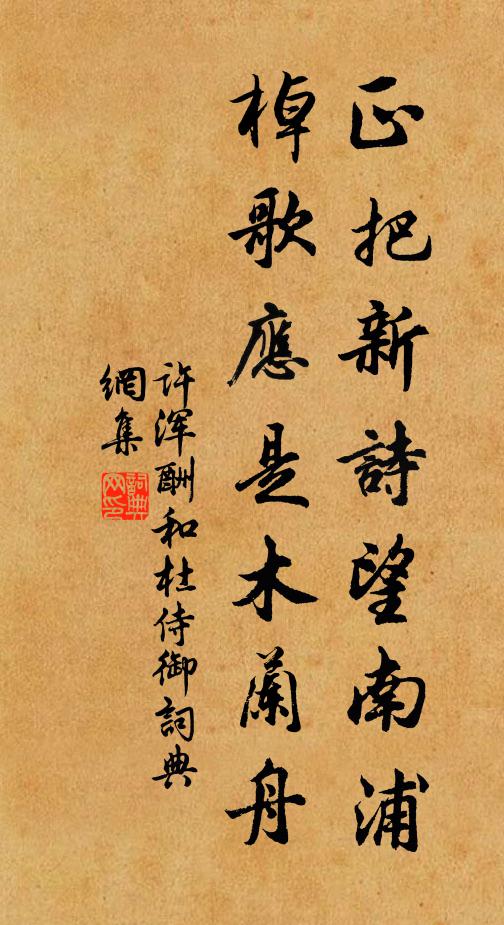 正把新詩望南浦
棹歌應是木蘭舟
許渾酬和杜侍御詞典
網集
詞典
网印